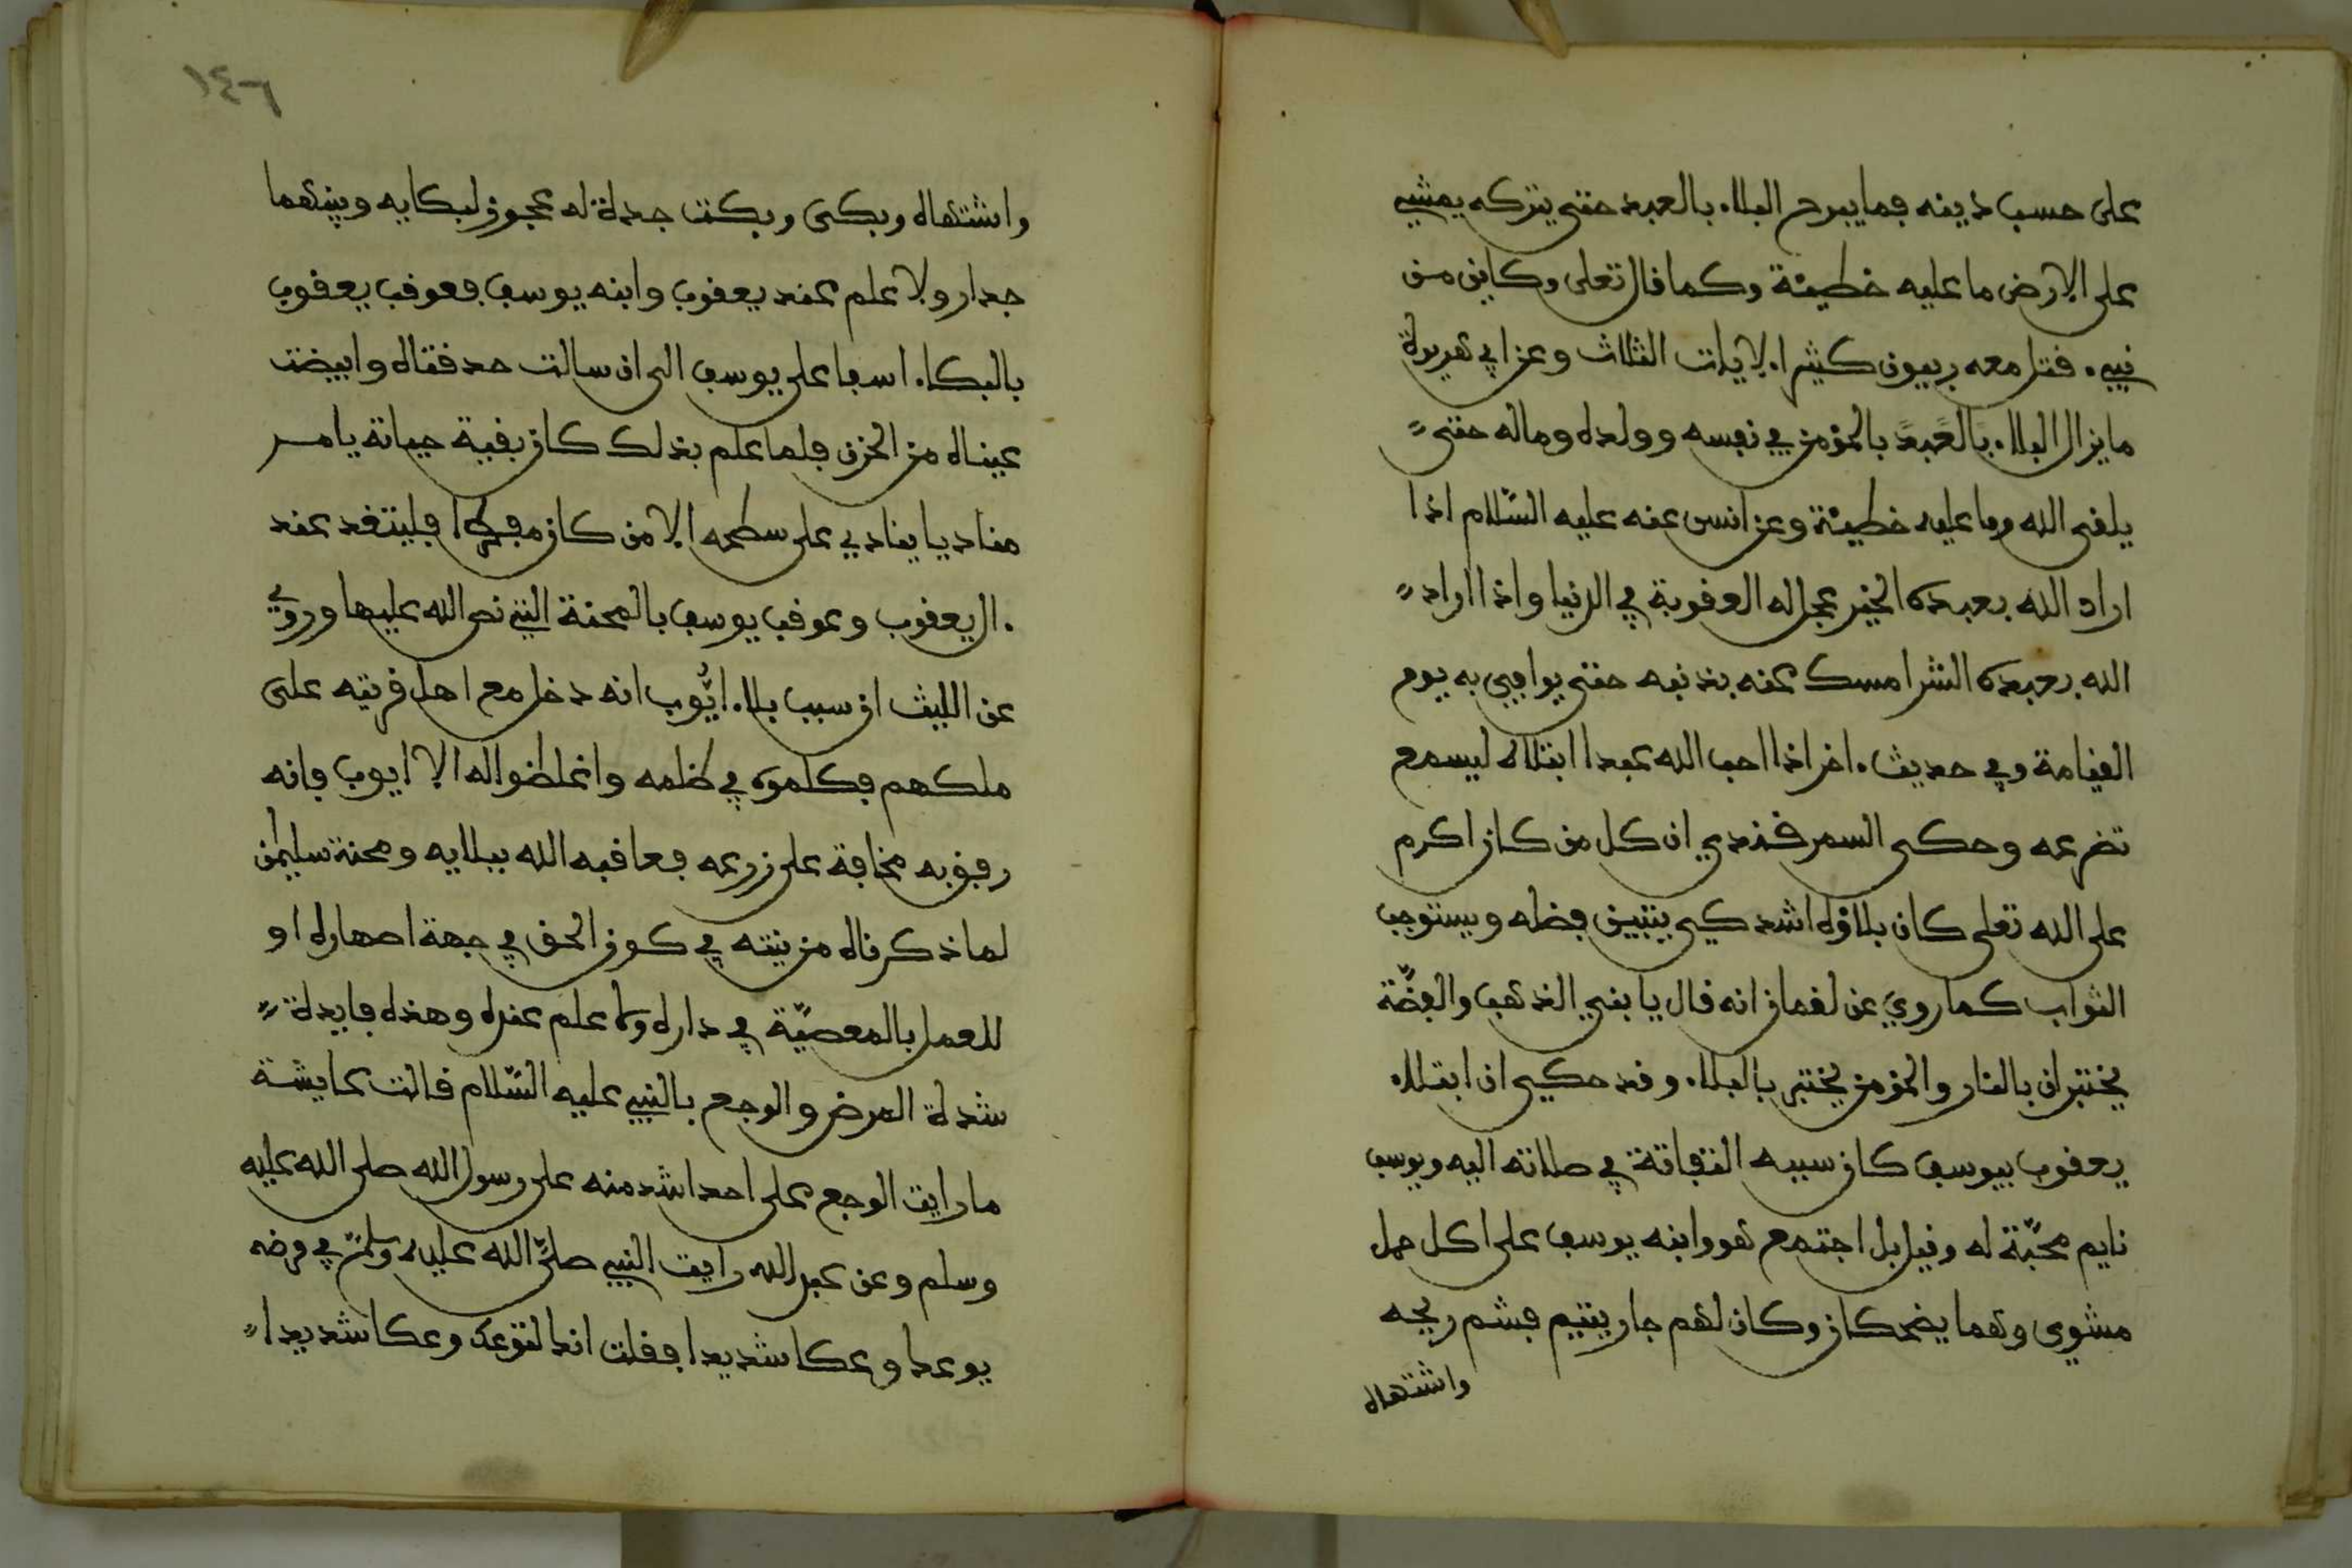 على حسب دينه فما يبرح البلاء بالعبد حتى يتركه يمشي
على الارض ما عليه خطيئة وكما قال تعلى وكاين من
نبيء قتل معه ربيون كثيرا الايات الثلاث وعن ابي هريرة
ما يزال البلاء بالعبد بالمؤمن في نفسه وولده وماله حتى
يلقى الله وما عليه خطيئة وعن انس عنه عليه السلام اذا
اراد الله بعبده الخير عجل له العقوبة في الدنيا واذا اراد
الله بعبده الشر امسك عنه بذنبه حتى يوافيي به يوم
القيامة وفي حديث اخر اذا احب الله عبدا ابتلاه ليسمع
تضرعه وحكى السمرقندي ان كل من كان اكرم
على الله تعلى كان بلاؤه اشد كي يتبين فضله ويستوجب
الثواب كما روي عن لقمان انه قال يا بني الذهب والفضّة
يختبران بالنار والمؤمن يختبر بالبلاء وقد حكي ان ابتلاء
يعقوب بيوسف كان سببه التفاتة في صلاته اليه ويوسف
نايم محبّة له وقيل بل اجتمع هو وابنه يوسف على اكل حمل
مشوى وهما يضحكان وكان لهم جار يتيم فشم ريحه
واشتهاه
١٤٦
واشتهاه وبكى وبكت جدة له عجوز لبكايه وبينهما
جدار ولا علم عند يعقوب وابنه يوسف فعوقب يعقوب
بالبكاء اسفا على يوسف الى ان سالت حدقتاه وابيضت
عيناه من الحزن فلما علم بذلك كان بقية حياته يامر
مناديا ينادي على سطحه الا من كان مفطرا فليتغد عند
ال يعقوب وعوقب يوسف بالمحنة التي نص الله عليها وروي
عن الليث ان سبب بلاء ايّوب انه دخل مع اهل قريته على
ملكهم فكلموه في ظلمه واغلظوا له الا ايوب فانه
رفق به مخافة على زرعه فعاقبه الله ببلايه ومحنة سليمن
لما ذكرناه من نيته في كون الحق في جهة اصهاره او
للعمل بالمعصيّة في داره ولا علم عنده وهذه فايدة
شدة المرض والوجع بالنبي عليه السّلام قالت عايشة
ما رايت الوجع على احد اشد منه على رسول الله صلى الله عليه
وسلم وعن عبد الله رايت النبي صلّى الله عليه وسلم في مرضه
يوعك وعكا شديدا فقلت انك لتوعك وعكا شديدا